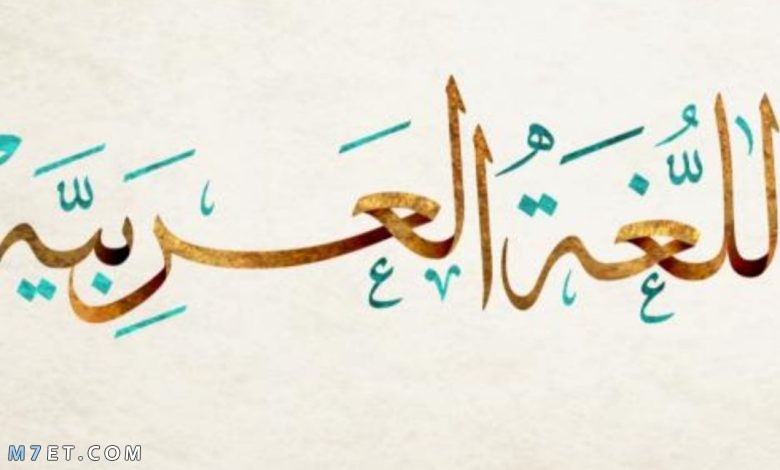 للُّغَةُ الْعَرَبِيَّة
M7ET.COM